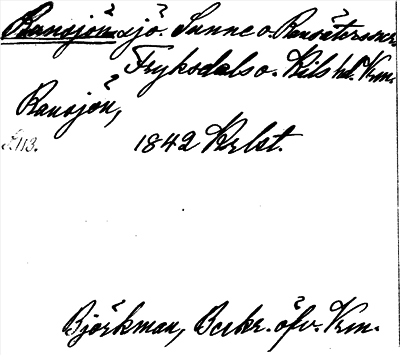 Ransjön sjö. Sunne o. Ransäters snr.
Fryksdals o. Kils hd. Vrm.
Ransjön,
1842 Krlst.
Björkman, Beskr. öfv. Vrm.